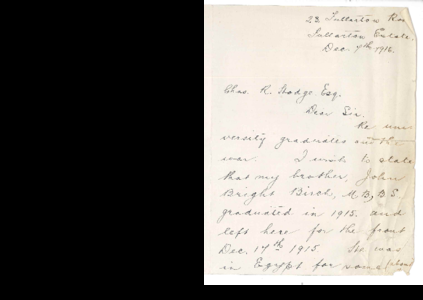 23 Fullarton Roa
Fullarton Estate.
Dec. 7th 1918.
Chas. R. Hodge Esq.
Dear Sir.
Re uni-
versity graduates and the
war. I wish to state
that my brother, John
Bright Birch, M.B., B.S.
graduated in 1915. and
left here for the front
Dec. 17th 1915 He was
in Egypt for some (about